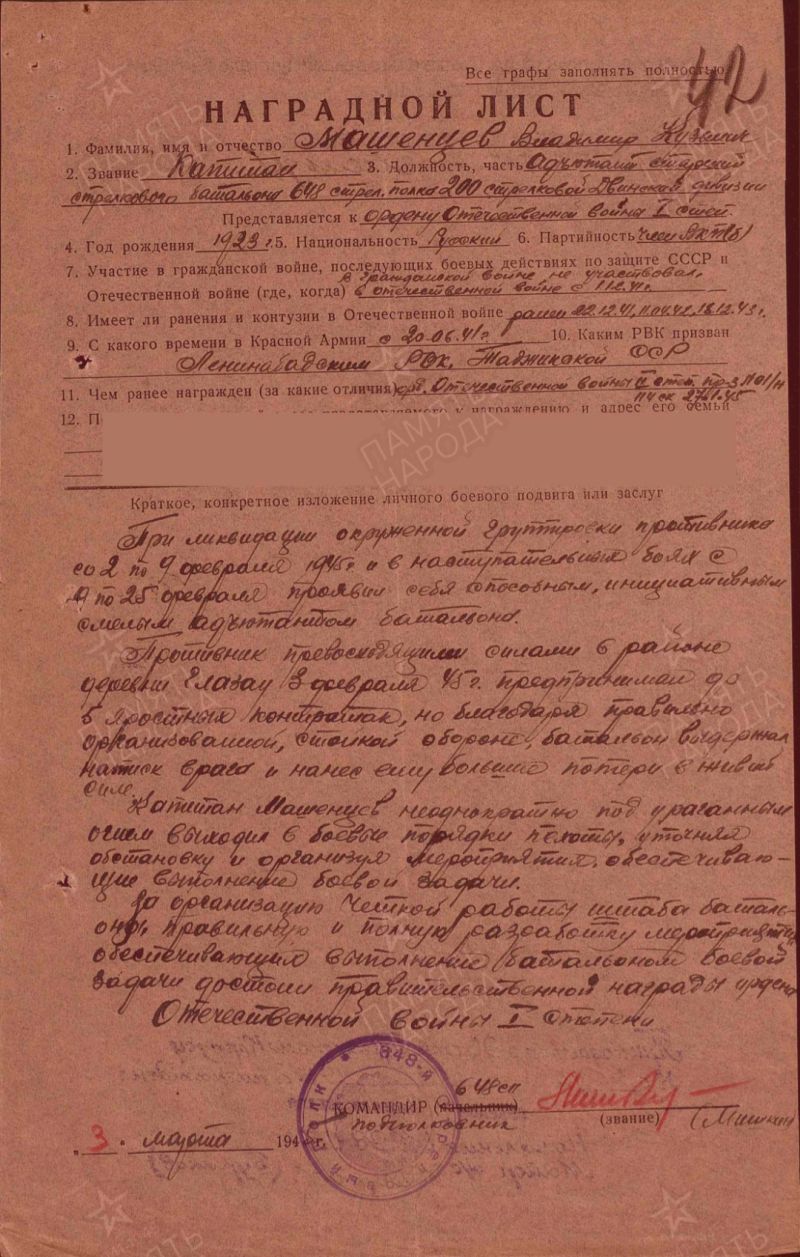 Все графы заполнять полностью
42
НАГРАДНОЙ ЛИСТ
1. Фамилия, имя и отчество Машенцев Владимир Кузьмич
2. Звание Капитан 3. Должность, часть Адъютант старший
стрелкового батальона 648 стрел. полка 200 стрелковой Двинской дивизии
Представляется к ордену Отечественной войны I степ.
4. Год рождения 1923 г. 5. Национальность Русский 6. Партийность член ВКП(б)
7. Участие в гражданской войне, последующих боевых действиях по защите СССР и
в гражданской войне не участвовал,
Отечественной войне (где, когда) в отечественной войне с
8. Имеет ли ранения и контузии в Отечественной войне ранен 22.12.41, 11.04.42, 18.12.43 г.
9. С какого времени в Красной Армии с 20.06.41 г 10. Каким РВК призван
Ленинабадским РВК, Таджикской ССР
11. Чем ранее награжден (за какие отличия) орд. Отечественной войны II степ. пр-з N 01/н
114 ск 27.1.45
12. П представляемого к награждению и адрес его семьи
Краткое, конкретное изложение личного боевого подвига или заслуг
При ликвидации окруженной группировки противника
со 2 по 9 февраля 1945 г и в наступательных боях с
9 по 25 февраля проявил себя способным, инициативным
смелым адъютантом батальона.
Противник превосходящими силами в районе
деревни Глазау 3 февраля 45 г. предпринимал до
5 яростных контратак, но благодаря правильно
организованной, стойкой обороне, батальон выдержал
натиск врага и нанес ему большие потери в живой
силе.
Капитан Машенцев неоднократно под ураганным
огнем выходил в боевые порядки пехоты, уточняя
обстановку и организуя мероприятия, обеспечиваю-
щие выполнение боевой задачи.
За организацию четкой работы штаба баталь-
она, правильную и полную разработку мероприятий
обеспечивающих выполнение батальоном боевой
задачи достоин правительственной награды ордена
Отечественной войны I степени
648 сп
КОМАНДИР (начальник)
подполковник
(звание)
„3“ марта 194 г.